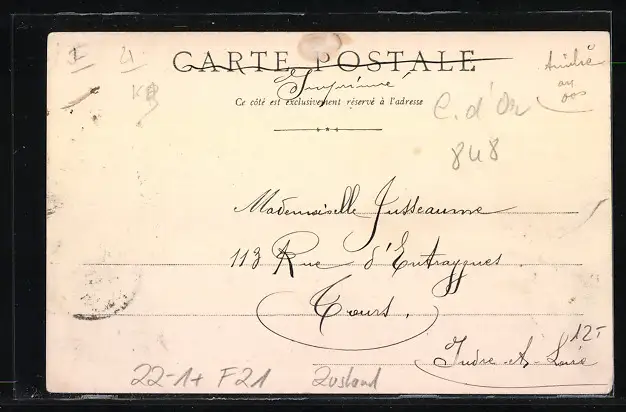 1 4 CARTE POSTALE
Imprimé
Ce côté est exclusivement réservé à l'adresse
C. d'Or
848
Mademoiselle Jusseaume
113 Rue d'Entraygues
Tours.
Indre-et-Loire
12-
22-1+ F21 Zustand